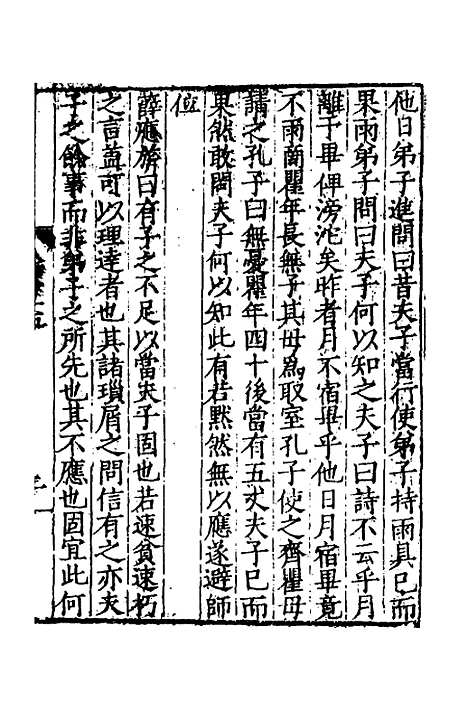 他日弟子進問曰昔夫子當行使弟子持雨具已而
果雨弟子問曰夫子何以知之夫子曰詩不云乎月
離于畢俾滂沱矣昨者月不宿畢乎他日月宿畢竟
不雨商瞿年長無子其母爲取室孔子使之齊瞿母
請之孔子曰無憂瞿年四十後當有五丈夫子已而
果然敢問夫子何以知此有若默然無以應遂避師
位
薛應旂曰有子之不足以當夫子固也若速貧速朽
之言葢可以理達者也其諸瑣屑之問信有之亦夫
子之餘事而非弟子之所先也其不應也固宜此何